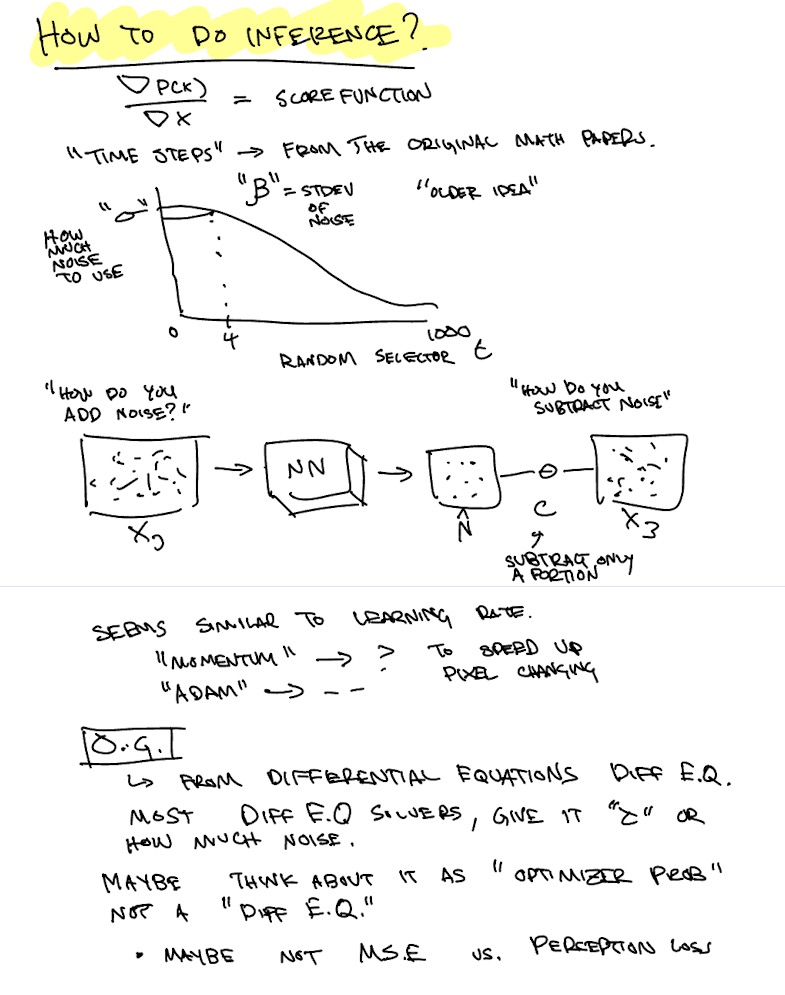 HOW TO DO INFERENCE?
∇P(X) / ∇X = SCORE FUNCTION
"TIME STEPS" → FROM THE ORIGINAL MATH PAPERS.
"β" = STDEV OF NOISE
"OLDER IDEA"
"σ"
HOW MUCH NOISE TO USE
0 4 1000
RANDOM SELECTOR t
"HOW DO YOU
ADD NOISE?"
"HOW DO YOU
SUBTRACT NOISE"
NN
N̂
C
X3
SUBTRACT ONLY
A PORTION
SEEMS SIMILAR TO LEARNING RATE.
"MOMENTUM" → ? TO SPEED UP
PIXEL CHANGING
"ADAM" → - -
O.G.
↳ FROM DIFFERENTIAL EQUATIONS DIFF E.Q.
MOST DIFF E.Q SOLVERS, GIVE IT OR
HOW MUCH NOISE.
MAYBE THINK ABOUT IT AS "OPTIMIZER PROB"
NOT A "DIFF E.Q."
• MAYBE NOT M.S.E VS. PERCEPTION LOSS